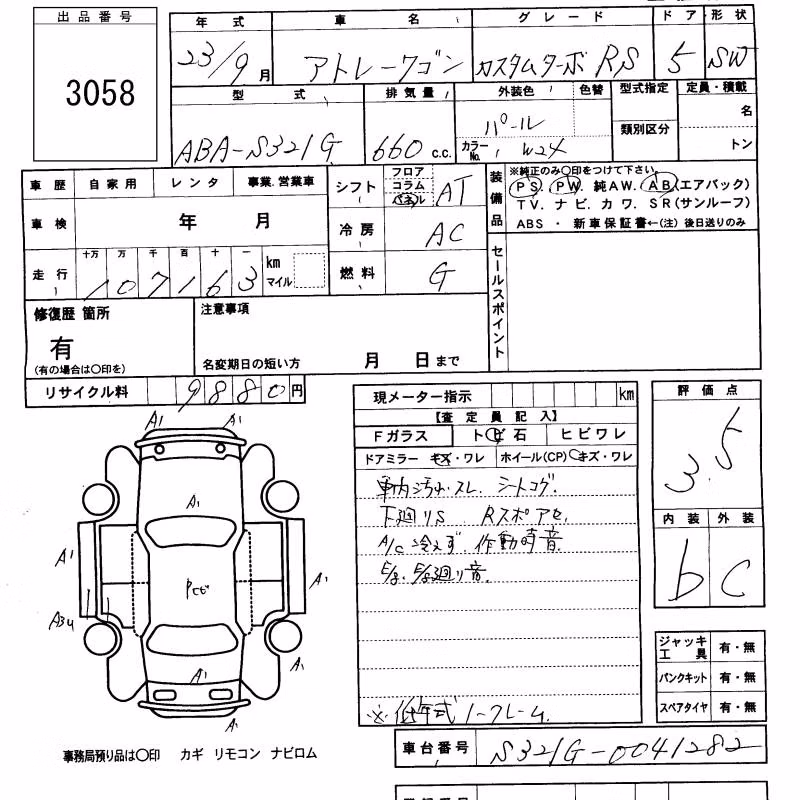 出品番号
3058
年式 車名 グレード ドア 形状
23/9月 アトレーワゴン カスタムターボRS 5 SW
型式 排気量 外装色 色替 型式指定 定員・積載
ABA-S321G 660 c.c. パール カラーNo. W24 類別区分 名
トン
車歴 自家用 レンタ 事業.営業車
車検 年 月
走行 十万 万 千 百 十 一 km マイル
107163
シフト フロア コラム パネル AT
冷房 AC
燃料 G
装備品
※純正のみ〇印をつけて下さい
PS. PW. 純AW. AB(エアバック)
TV. ナビ. カワ. SR(サンルーフ)
ABS ・ 新車保証書←(注) 後日送りのみ
セールスポイント
修復歴 箇所
有
(有の場合は〇印を)
注意事項
名変期日の短い方 月 日まで
リサイクル料 9880円
現メーター指示 km
【査定員記入】
Fガラス トビ石 ヒビワレ
ドアミラー キズ・ワレ ホイール(CP) キズ・ワレ
車内汚れ.スレ. シートコゲ.
下廻りS Rスポアセ.
A/C冷えず 作動時音.
E/g. E/g廻り音.
※低年式ノークレーム.
評価点
3.5
内装 外装
b C
ジャッキ工具 有・無
パンクキット 有・無
スペアタイヤ 有・無
A1 A1
A1
A1
A1
A34
Pとび
A1
A1
A1
事務局預り品は〇印 カギ リモコン ナビロム
車台番号 S321G-0041282